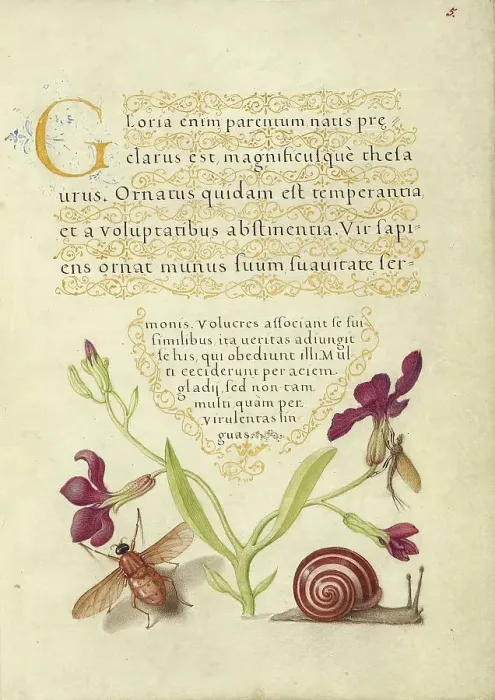 5.
Gloria enim parentum natis prę-
clarus est, magnificuſquè theſa
urus. Ornatus quidam eſt temperantia,
et a voluptatibus abſtinentia. Vir ſapi-
ens ornat munus ſuum ſuauitate ſer-
monis. Volucres aſſociant ſe ſui
ſimilibus, ita ueritas adiungit
ſe his, qui obediunt illi. Mul
ti ceciderunt per aciem
gladij, ſed non tam
multi quàm per
virulentas lin
guas.